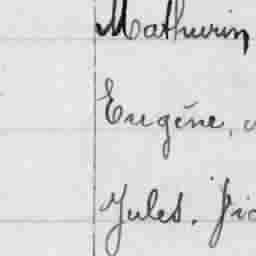 Mathurin
Eugène,
Jules.